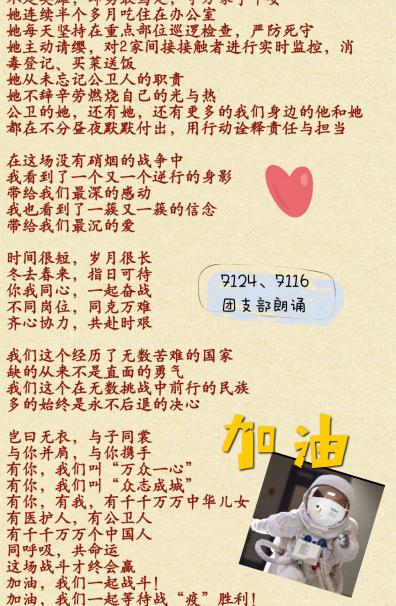 她连续半个多月吃住在办公室
她每天坚持在重点部位巡逻检查，严防死守
她主动请缨，对2家间接接触者进行实时监控，消
毒登记、买菜送饭
她从未忘记公卫人的职责
她不辞辛劳燃烧自己的光与热
公卫的她，还有她，还有更多的我们身边的他和她
都在不分昼夜默默付出，用行动诠释责任与担当
在这场没有硝烟的战争中
我看到了一个又一个逆行的身影
带给我们最深的感动
我也看到了一簇又一簇的信念
带给我们最沉的爱
时间很短，岁月很长
冬去春来，指日可待
你我同心，一起奋战
不同岗位，同克万难
齐心协力，共赴时艰
9124、9116
团支部朗诵
我们这个经历了无数苦难的国家
缺的从来不是直面的勇气
我们这个在无数挑战中前行的民族
多的始终是永不后退的决心
岂曰无衣，与子同裳
与你并肩，与你携手
有你，我们叫“万众一心”
有你，我们叫“众志成城”
有你，有我，有千千万万中华儿女
有医护人，有公卫人
有千千万万个中国人
同呼吸，共命运
这场战斗才终会赢
加油，我们一起战斗！
加油，我们一起等待战“疫”胜利！
加油